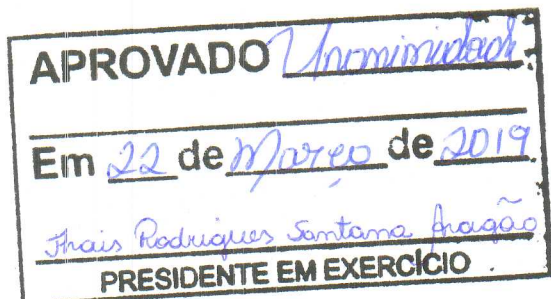 APROVADO Unanimidade
Em 22 de Março de 2019
Thais Rodrigues Santana Aragão
PRESIDENTE EM EXERCÍCIO